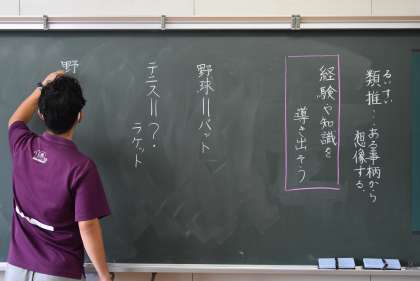 るいすい
類推…ある事柄から
想像する。
経験や知識を
導き出そう
野球=バット
テニス=?
ラケット
野